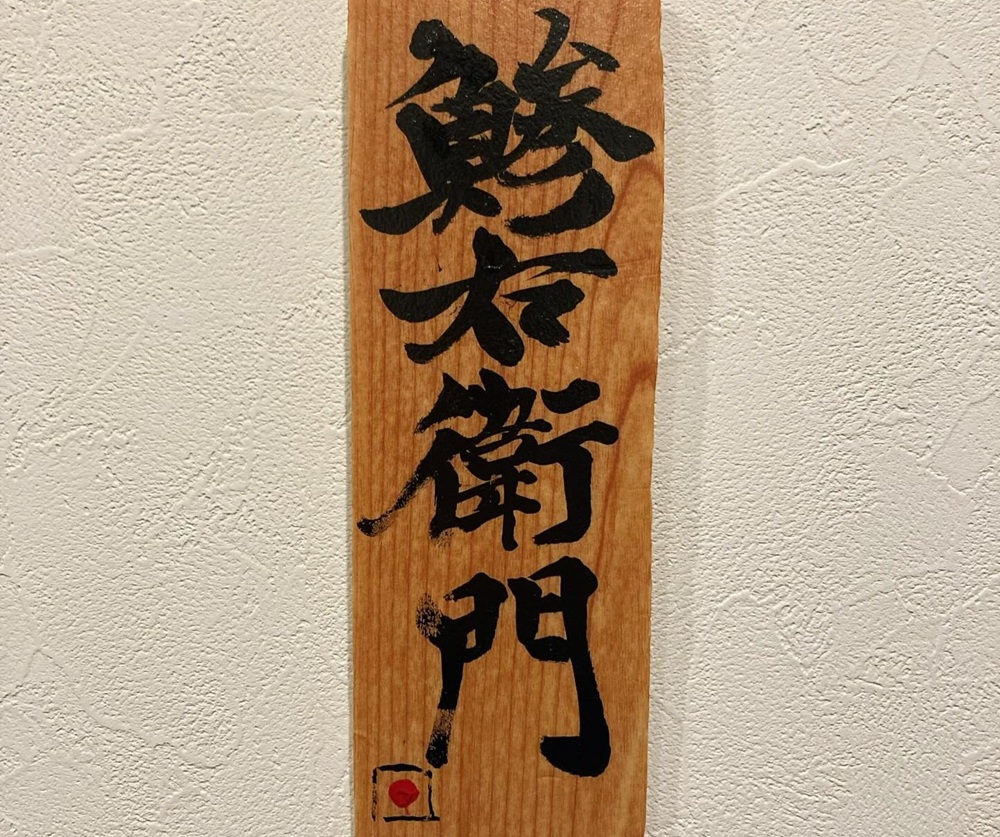 鯵右衛門